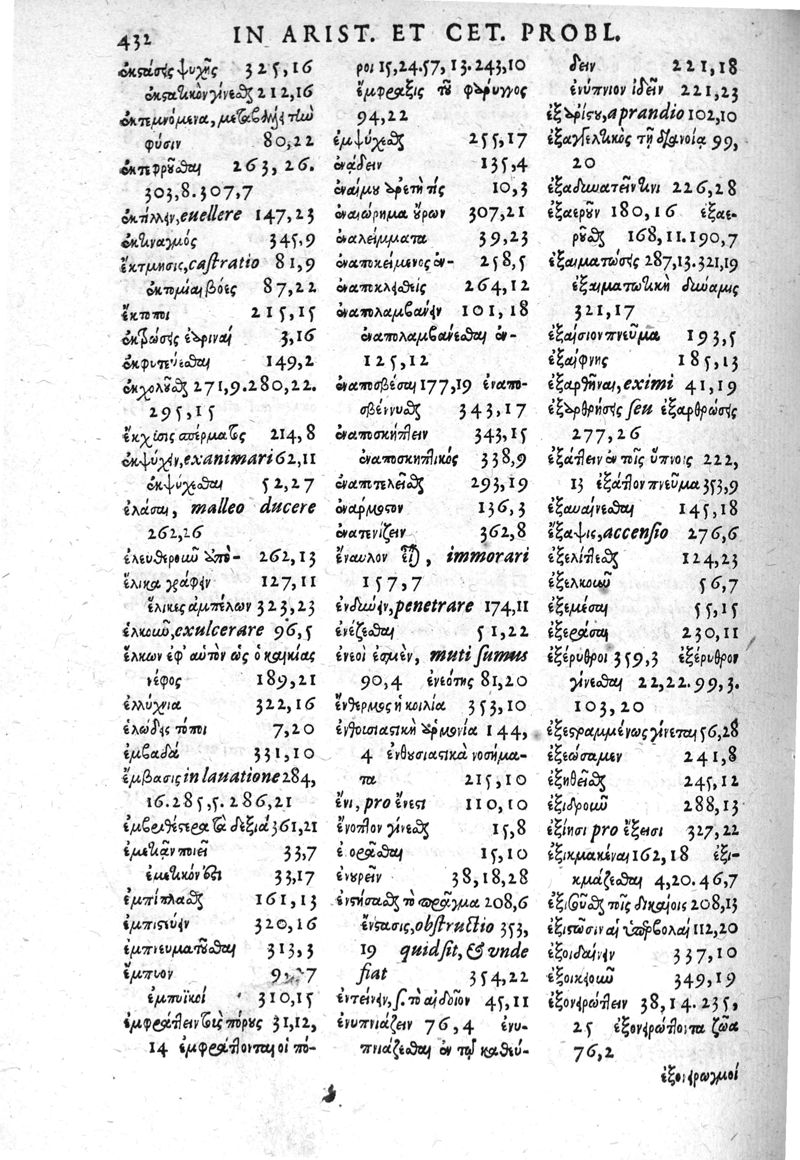 432 IN ARIST. ET CET. PROBL.
ἐκστάσεις ψυχῆς 325,16
ἐκστατικὸν γίνεσθαι 212,16
ἐκτεμνόμενα, μεταβάλλει τὴν
φύσιν 80,22
ἐκτεφροῦσθαι 263,26.
303,8.307,7
ἐκτίλλειν, euellere 147,23
ἐκτιναγμός 345,9
ἔκτμησις, castratio 81,9
ἐκτομίαι βόες 87,22
ἔκτοποι 215,15
ἐκφύσεις ἐαριναί 3,16
ἐκφυτεύεσθαι 149,2
ἐκχολοῦσθαι 271,9.280,22.
295,15
ἔκχυσις σπέρματος 214,8
ἐκψύχειν, exanimari 62,11
ἐκψύχεσθαι 52,27
ἐλάσαι, malleo ducere
262,26
ἐλευθεροῦν ἀπὸ- 262,13
ἕλικα γράφειν 127,11
ἕλικες ἀμπέλων 323,23
ἑλκοῦν, exulcerare 96,5
ἕλκων ἐφ' αὑτὸν ὡς ὁ καικίας
νέφος 189,21
ἐλλύχνια 322,16
ἑλώδεις τόποι 7,20
ἐμβαδά 331,10
ἔμβασις in lauatione 284,
16.285,5.286,21
ἐμβριθέστερα τὰ δεξιά 361,21
ἐμετιᾶν ποιεῖ 33,7
ἐμετικόν ἐστι 33,17
ἐμπίπλασθαι 161,13
ἐμπιστεύειν 320,16
ἐμπνευματοῦσθαι 313,3
ἔμπυον
ἐμπυϊκοί 310,15
ἐμφράττειν τοὺς πόρους 31,12,
14 ἐμφράττονται οἱ πό-
ροι 15,24.57,13.243,10
ἔμφραξις τοῦ φάρυγγος
94,22
ἐμψύχεσθαι 255,17
ἐνᾴδειν 135,4
ἐναίμου ἀρετή τις 10,3
ἐναιώρημα οὔρων 307,21
ἐναλείμματα 39,23
ἐναποκείμενος ἐν- 258,5
ἐναποκλεισθεὶς 264,12
ἐναπολαμβάνειν 101,18
ἐναπολαμβάνεσθαι ἐν-
125,12
ἐναποσβέσαι 177,19 ἐναπο-
σβέννυσθαι 343,17
ἐναποσκήπτειν 343,15
ἐναποσκηπτικός 338,9
ἐναποτελεῖσθαι 293,19
ἐνάρμοστον 136,3
ἐνατενίζειν 362,8
ἔναυλον εἶναι, immorari
157,7
ἐνδύνειν, penetrare 174,11
ἐνέζεσθαι 51,22
ἐνεοὶ ἐσμὲν, muti sumus
90,4 ἐνεότης 81,20
ἔνθερμος ἡ κοιλία 353,10
ἐνθουσιαστικὴ ἁρμονία 144,
4 ἐνθυσιαστικὰ νοσήμα-
τα 215,10
ἔνι, pro ἔνεστι 110,10
ἔνοπλον γίνεσθαι 15,8
ἐνορᾶσθαι 15,10
ἐνουρεῖν 38,18,28
ἐνστήσασθαι τὸ πρᾶγμα 208,6
ἔνστασις, obstructio 353,
19 quid sit, & vnde
fiat 354,22
ἐντείνειν, s. τὸ αἰδοῖον 45,11
ἐνυπνιάζειν 76,4 ἐνυ-
πνιάζεσθαι ἐν τῷ καθεύ-
δειν 221,18
ἐνύπνιον ἰδεῖν 221,23
ἐξ ἀρίστου, a prandio 102,10
ἐξαγγελτικὸς τῇ διανοίᾳ 99,
20
ἐξαδυνατεῖν τινι 226,28
ἐξαερῶν 180,16 ἐξαε-
ροῦσθαι 168,11.190,7
ἐξαιματώσεις 287,13.321,19
ἐξαιματωτικὴ δύναμις
321,17
ἐξαίσιον πνεῦμα 193,5
ἐξαίφνης 185,13
ἐξαρθῆναι, eximi 41,19
ἐξαρθρήσεις seu ἐξαρθρώσεις
277,26
ἐξάττειν ἐν τοῖς ὕπνοις 222,
13 ἐξᾶττον πνεῦμα 353,9
ἐξαυαίνεσθαι 145,18
ἔξαψις, accensio 276,6
ἐξελίττεσθαι 124,23
ἐξελκοῦν 56,7
ἐξεμέσαι 55,15
ἐξεράσαι 230,11
ἐξέρυθροι 359,3 ἐξέρυθρον
γίνεσθαι 22,22.99,3.
103,20
ἐξεστραμμένως γίνεται 56,28
ἐξεώσαμεν 241,8
ἐξηθεῖσθαι 245,12
ἐξιδροῦν 288,13
ἐξίησι pro ἔξεισι 327,22
ἐξικμακέναι 162,18 ἐξι-
κμάζεσθαι 4,20.46,7
ἐξισοῦσθαι τοῖς δικαίοις 208,13
ἐξιστῶσιν αἱ ὑπερβολαί 112,20
ἐξοιδαίνειν 337,10
ἐξοικειοῦν 349,19
ἐξονειρώττειν 38,14.235,
25 ἐξονειρώττοντα ζῶα
76,2
ἐξονειρωγμοί